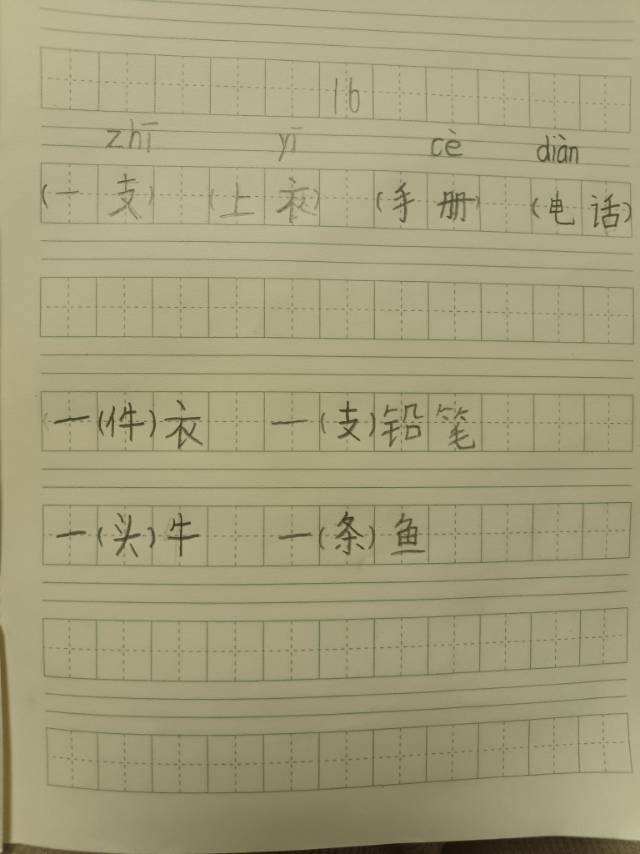 16
zhī yī cè diàn
(一支) (上衣) (手册) (电话)
一(件)衣 一(支)铅笔
一(头)牛 一(条)鱼